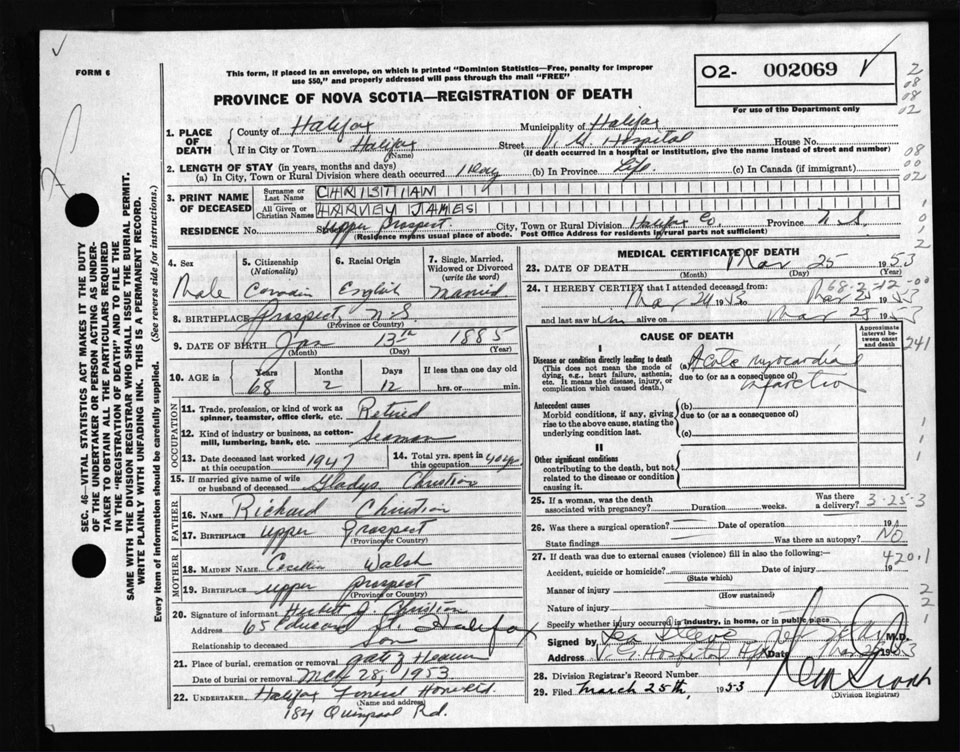 FORM 6
This form, if placed in an envelope, on which is printed "Dominion Statistics—Free, penalty for improper
use $50," and properly addressed will pass through the mail "FREE"
O2- 002069
For use of the Department only
PROVINCE OF NOVA SCOTIA—REGISTRATION OF DEATH
2
08
08
02
1. PLACE OF DEATH
County of Halifax Municipality of Halifax
If in City or Town Halifax (Name) Street V. G. Hospital House No.
(If death occurred in a hospital or institution, give the name instead of street and number)
2. LENGTH OF STAY (in years, months and days)
(a) In City, Town or Rural Division where death occurred 1 Day (b) In Province Life (c) In Canada (if immigrant)
08
00
02
3. PRINT NAME OF DECEASED
Surname or Last Name CHRISTIAN
All Given or Christian Names HARVEY JAMES
RESIDENCE No. Upper Prospect City, Town or Rural Division Halifax Co. Province N.S.
(Residence means usual place of abode. Post Office Address for residents in rural parts not sufficient)
SEC. 46—VITAL STATISTICS ACT MAKES IT THE DUTY
OF THE UNDERTAKER OR PERSON ACTING AS UNDER-
TAKER TO OBTAIN ALL THE PARTICULARS REQUIRED
IN THE "REGISTRATION OF DEATH" AND TO FILE THE
SAME WITH THE DIVISION REGISTRAR WHO SHALL ISSUE THE BURIAL PERMIT.
WRITE PLAINLY WITH UNFADING INK. THIS IS A PERMANENT RECORD.
Every item of information should be carefully supplied. (See reverse side for instructions.)
4. Sex
Male
5. Citizenship
(Nationality)
6. Racial Origin
English
7. Single, Married,
Widowed or Divorced
(write the word)
Married
8. BIRTHPLACE Prospect, N.S.
(Province or Country)
9. DATE OF BIRTH Jan 13th 1885
(Month) (Day) (Year)
10. AGE in Years 68 Months 2 Days 12
If less than one day old
hrs. or min.
OCCUPATION
11. Trade, profession, or kind of work as
spinner, teamster, office clerk, etc. Retired
12. Kind of industry or business, as cotton-
mill, lumbering, bank, etc. Seaman
13. Date deceased last worked
at this occupation 1947
14. Total yrs. spent in
this occupation 40 yr.
15. If married give name of wife
or husband of deceased Gladys Christian
FATHER
16. NAME Richard Christian
17. BIRTHPLACE Upper Prospect
(Province or Country)
MOTHER
18. MAIDEN NAME Walsh
19. BIRTHPLACE Upper Prospect
(Province or Country)
20. Signature of informant J. Christian
Address 65 St. Halifax
Relationship to deceased Son
21. Place of burial, cremation or removal
Date of burial or removal Mch 28, 1953
22. UNDERTAKER Halifax Funeral Home
(Name and address)
184 Quinpool Rd.
MEDICAL CERTIFICATE OF DEATH
23. DATE OF DEATH Mar 25 1953
(Month) (Day) (Year)
68-2-12-00
24. I HEREBY CERTIFY that I attended deceased from:
Mar 24 1953 to Mar 25 1953
and last saw him alive on Mar 25 1953
CAUSE OF DEATH
Approximate
interval be-
tween onset
and death
241
I
Disease or condition directly leading to death
(This does not mean the mode of
dying, e.g., heart failure, asthenia,
etc. It means the disease, injury, or
complication which caused death.)
(a) Acute myocardial
due to (or as a consequence of)
infarction
Antecedent causes
Morbid conditions, if any, giving
rise to the above cause, stating the
underlying condition last.
(b)
due to (or as a consequence of)
(c)
II
Other significant conditions
contributing to the death, but not
related to the disease or condition
causing it.
25. If a woman, was the death
associated with pregnancy? Duration weeks. Was there
a delivery?
3-25-3
26. Was there a surgical operation? Date of operation 19
State findings Was there an autopsy? No
27. If death was due to external causes (violence) fill in also the following:—
420.1
Accident, suicide or homicide? Date of injury 19
(State which)
Manner of injury
(How sustained)
Nature of injury
Specify whether injury occurred in industry, in home, or in public place
Signed by M.D.
Address V. G. Hospital Date 1953
28. Division Registrar's Record Number
29. Filed March 25th, 1953
(Division Registrar)